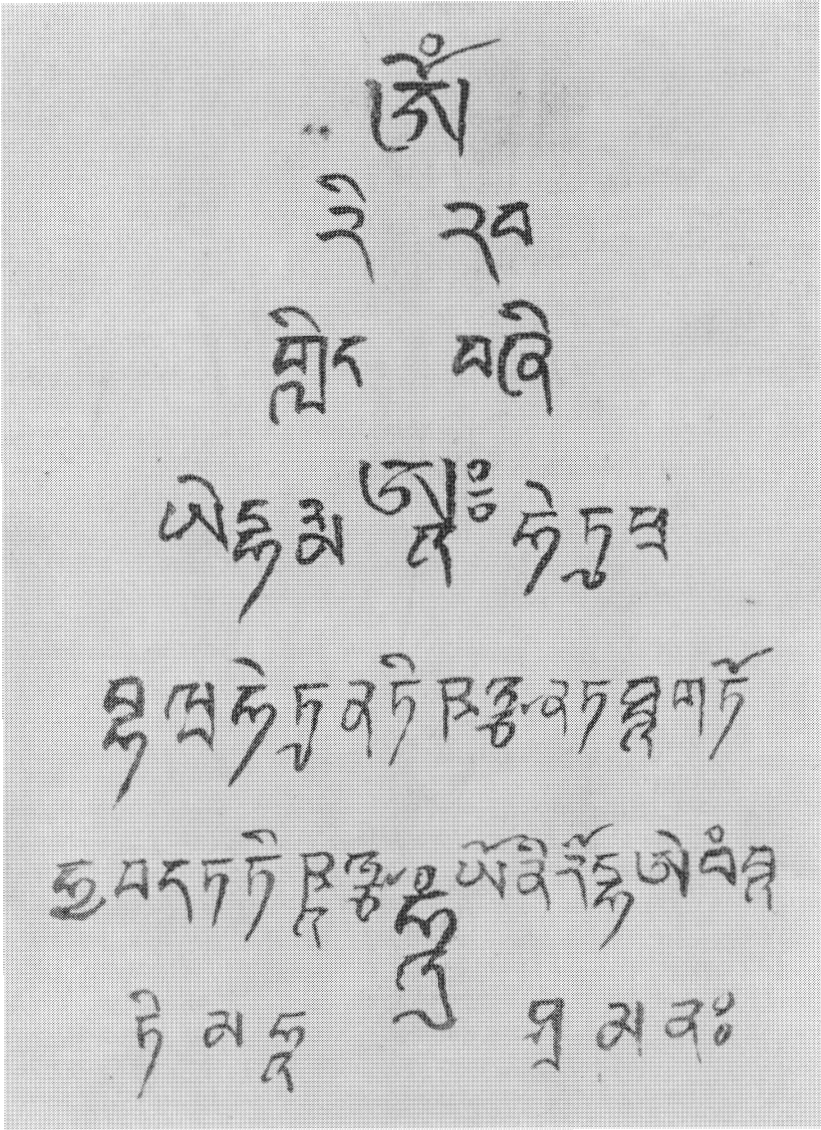 ཨོཾ
རི རབ
གླིང བཞི
ཡེ དྷ རྨ ཨཱཿ ཧེ ཏུ པྲ
བྷ ཝ ཧེ ཏུ ན ཏེ ཥཱཉྩ ན ཏ ཐཱ ག ཏོ
ཧྱ བ ད ཏ ཏེ ཥཱཉྩ ཡོ ནི རོ དྷ ཨེ བཾ བཱ
དི མ ཧཱ ཤྲ མ ནཿ